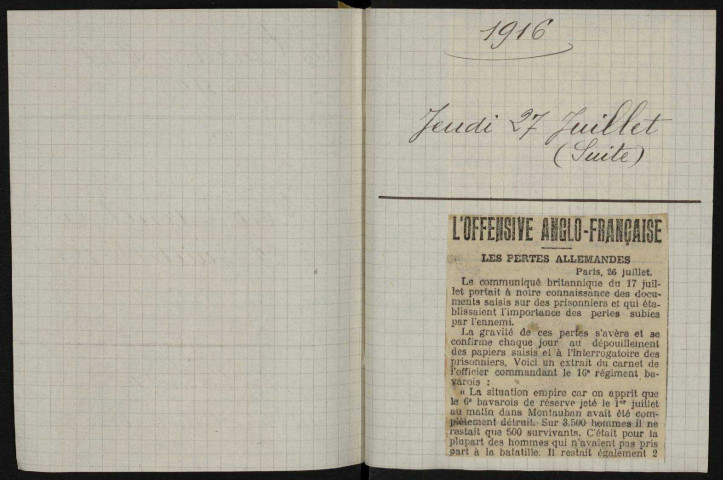 1916
Jeudi 27 Juillet
(Suite)
L'OFFENSIVE ANGLO-FRANÇAISE
LES PERTES ALLEMANDES
Paris, 26 juillet.
Le communiqué britannique du 17 juil-
let portait à notre connaissance des docu-
ments saisis sur des prisonniers et qui éta-
blissaient l'importance des pertes subies
par l'ennemi.
La gravité de ces pertes s'avère et se
confirme chaque jour au dépouillement
des papiers saisis et à l'interrogatoire des
prisonniers. Voici un extrait du carnet de
l'officier commandant le 16e régiment ba-
varois :
« La situation empire car on apprit que
le 6e bavarois de réserve jeté le 1er juillet
au matin dans Montauban avait été com-
plètement détruit. Sur 3.500 hommes il ne
restait que 500 survivants. C'était pour la
plupart des hommes qui n'avaient pas pris
part à la bataille. Il restait également 2